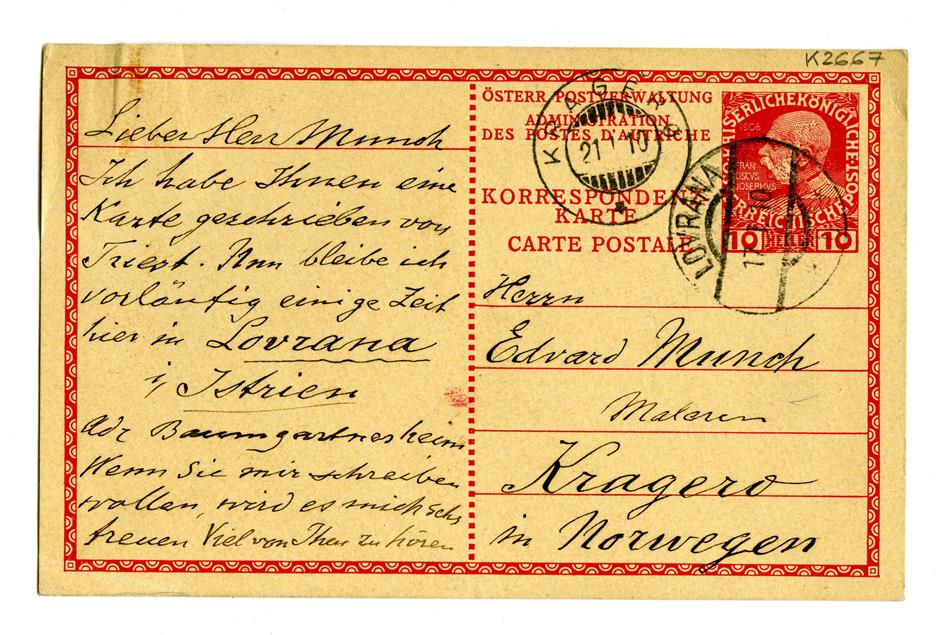 K2667
Lieber Herr Munch
Ich habe Ihnen eine
Karte geschrieben von
Triest. Nun bleibe ich
vorläufig einige Zeit
hier in Lovrana
i/ Istrien
Adr Baumgartnersheim
Wenn Sie mir schreiben
wollen, wird es mich sehr
freuen Viel von Ihen zu hören
ÖSTERR. POSTVERWALTUNG
ADMINISTRATION
DES POSTES D'AUTRICHE
KORRESPONDENZ
KARTE
CARTE POSTALE
KRAGERØ
21 1 10
1908
FRAN
CISCVS
JOSEPHVS
10 HELLER 10
LOVRANA
17 10
Herrn
Edvard Munch
Maleren
Kragerø
in Norwegen